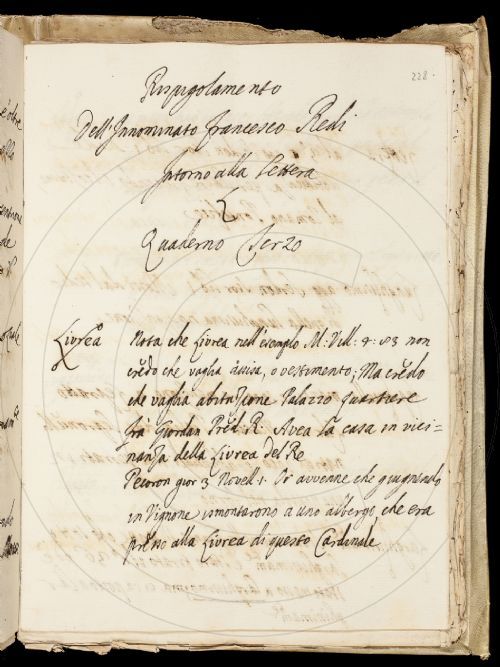 228.
Rispigolamento
Dell'Innominato Francesco Redi
Intorno alla lettera
L
Quaderno Terzo
Livrea
Nota che Livrea nell'esemplo M: Vill: 8: 83 non
credo che vaglia assisa, o vestimento; Ma credo
che vaglia abitazione Palazzo quartiere
Frà Giordan Pred. R: Avea la casa in vici-
nanza della Livrea del Re
Pecoron gior 3 Novell 1. Or avvenne che giugnendo
in Vignone ismontarono a uno albergo che era
presso alla Livrea di questo Cardinale